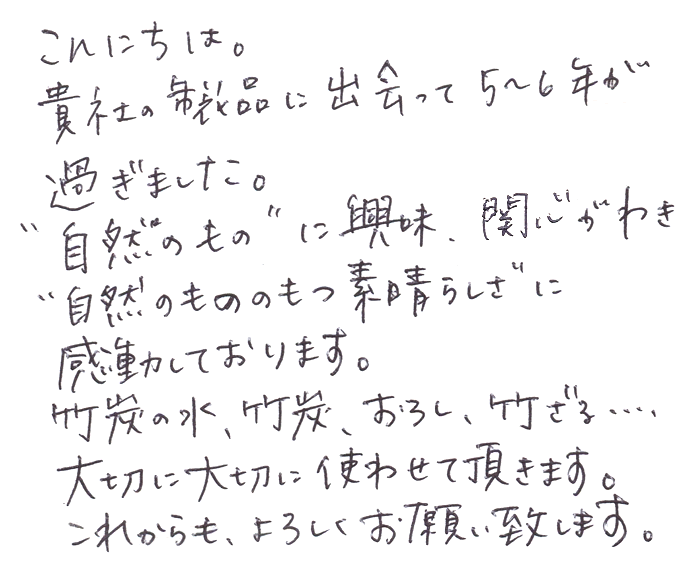 こんにちは。
貴社の製品に出会って5~6年が
過ぎました。
"自然のもの"に興味、関心がわき
"自然のもののもつ素晴らしさ"に
感動しております。
竹炭の水、竹炭、おろし、竹ざる‥‥
大切に大切に使わせて頂きます。
これからも、よろしくお願い致します。